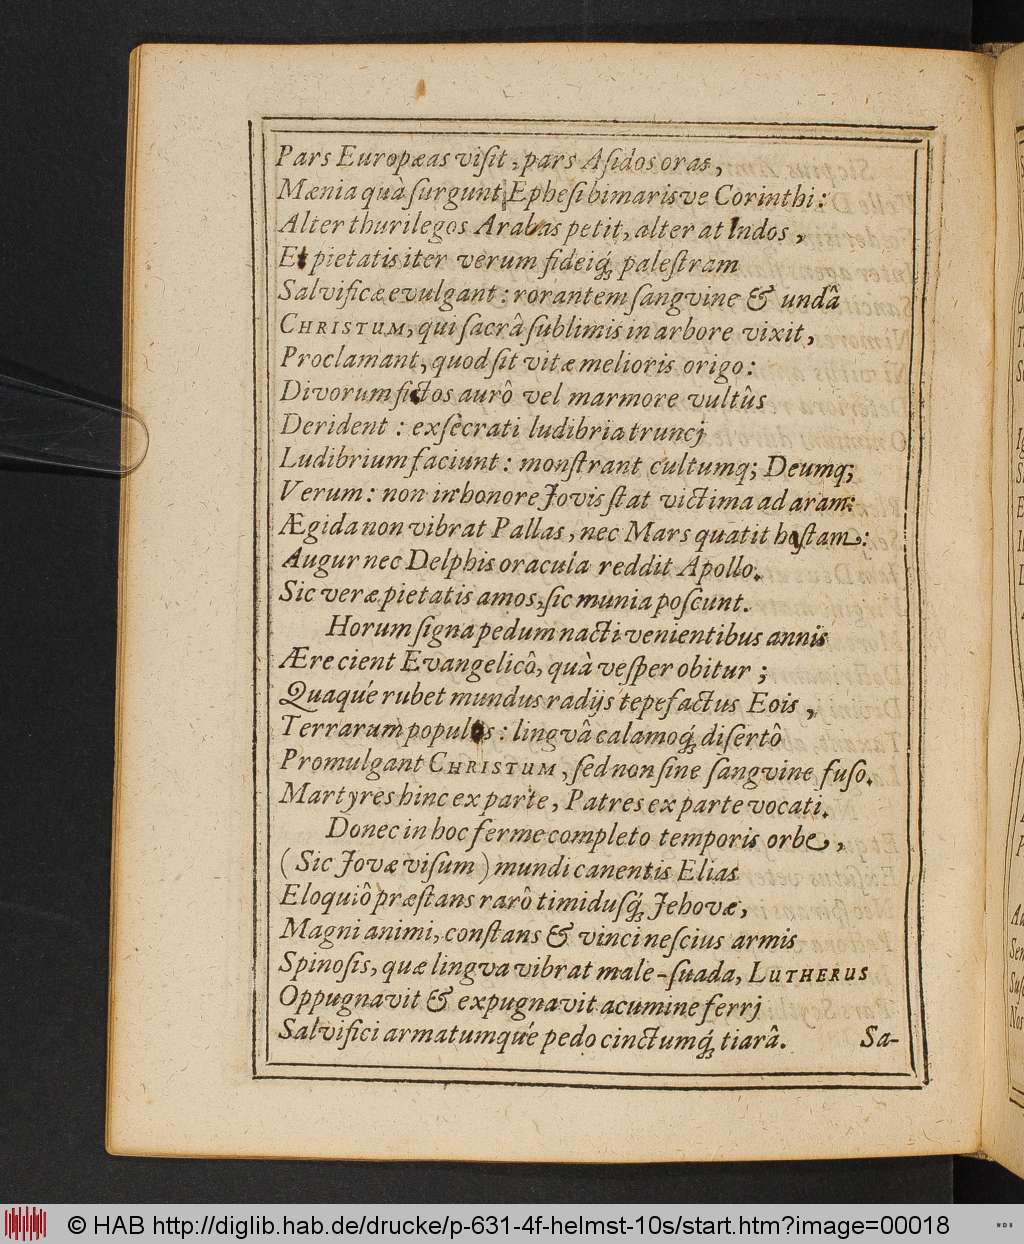 Pars Europæas viſit, pars Aſidos oras,
Mænia quà ſurgunt Epheſi bimarisve Corinthi:
Alter thurilegos Arabas petit, alter at Indos,
Et pietatis iter verum fideiq́; palæſtram
Salvificæ evulgant: rorantem ſangvine & undâ
CHRISTUM, qui ſacrâ ſublimis in arbore vixit,
Proclamant, quod ſit vitæ melioris origo:
Divorum fictos aurô vel marmore vultûs
Derident: exſêcrati ludibria truncj
Ludibrium faciunt: monſtrant cultumq; Deumq;
Verum: non in honore Jovis ſtat victima ad aram:
Ægida non vibrat Pallas, nec Mars quatit haſtam:
Augur nec Delphis oracula reddit Apollo.
Sic veræ pietatis amos, ſic munia poſcunt.
Horum ſigna pedum nacti venientibus annis
Ære cient Evangelicô, quà veſper obitur;
Quaqué rubet mundus radijs tepefactus Eois,
Terrarum populos: lingvâ calamoq́; diſertô
Promulgant CHRISTUM, ſed non ſine ſangvine fuſo.
Martyres hinc ex parte, Patres ex parte vocati.
Donec in hoc ferme completo temporis orbe,
(Sic Jovæ viſum) mundi canentis Elias
Eloquiô præſtans rarô timidusq́; Jehovæ,
Magni animi, conſtans & vinci neſcius armis
Spinoſis, quæ lingva vibrat male-ſuada, LUTHERUS
Oppugnavit & expugnavit acumine ferrj
Salvifici armatumqué pedo cinctumq́; tiarâ.
Sa-
© HAB http://diglib.hab.de/drucke/p-631-4f-helmst-10s/start.htm?image=00018